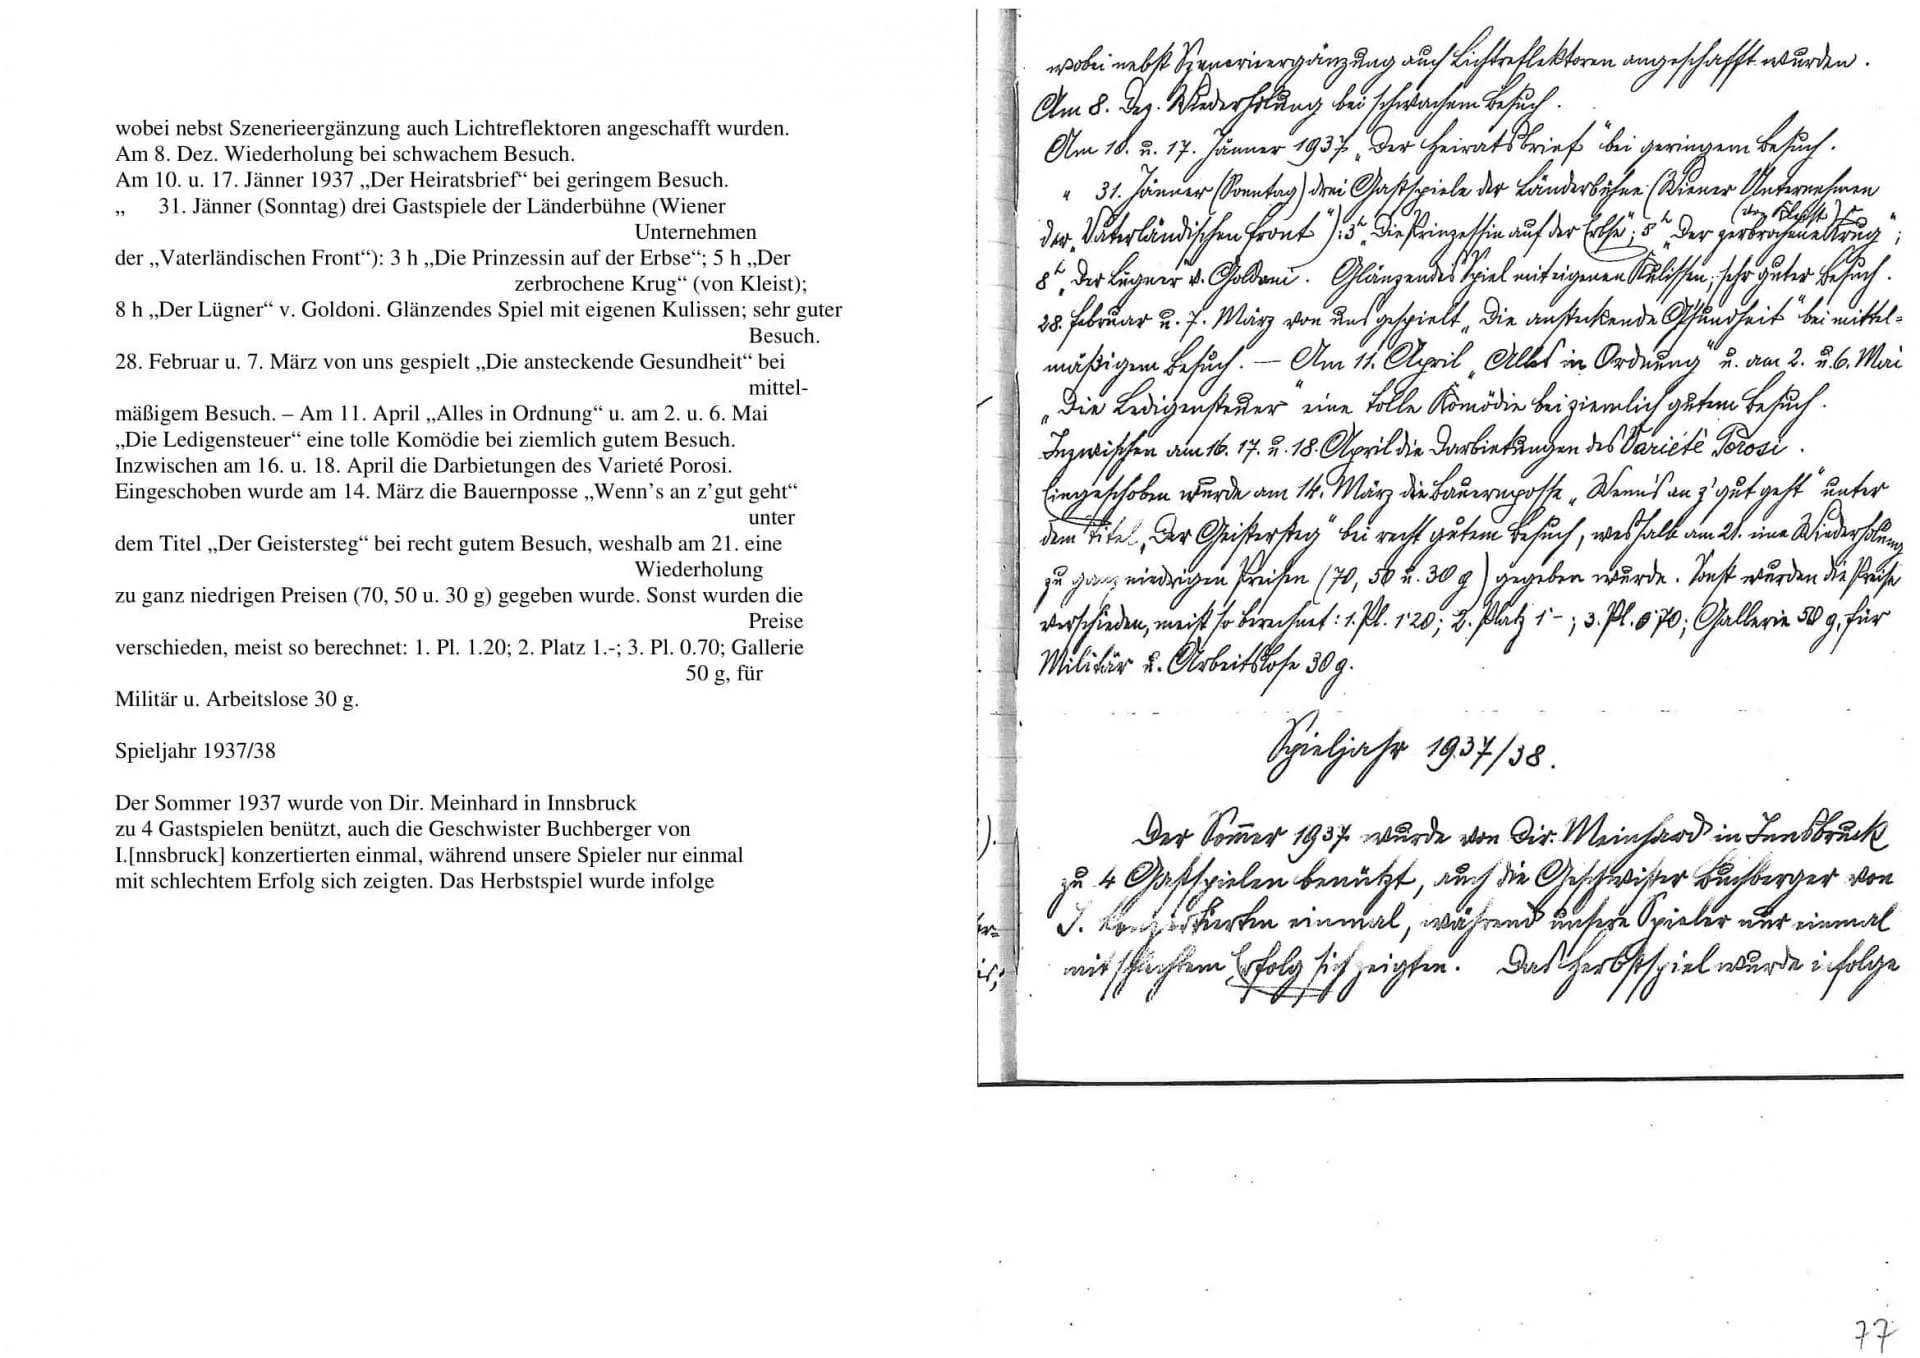 wobei nebst Szenerieergänzung auch Lichtreflektoren angeschafft wurden.
Am 8. Dez. Wiederholung bei schwachem Besuch.
Am 10. u. 17. Jänner 1937 „Der Heiratsbrief“ bei geringem Besuch.
„ 31. Jänner (Sonntag) drei Gastspiele der Länderbühne (Wiener
Unternehmen
der „Vaterländischen Front“): 3 h „Die Prinzessin auf der Erbse“; 5 h „Der
zerbrochene Krug“ (von Kleist);
8 h „Der Lügner“ v. Goldoni. Glänzendes Spiel mit eigenen Kulissen; sehr guter
Besuch.
28. Februar u. 7. März von uns gespielt „Die ansteckende Gesundheit“ bei
mittel-
mäßigem Besuch. – Am 11. April „Alles in Ordnung“ u. am 2. u. 6. Mai
„Die Ledigensteuer“ eine tolle Komödie bei ziemlich gutem Besuch.
Inzwischen am 16. u. 18. April die Darbietungen des Varieté Porosi.
Eingeschoben wurde am 14. März die Bauernposse „Wenn’s an z’gut geht“
unter
dem Titel „Der Geistersteg“ bei recht gutem Besuch, weshalb am 21. eine
Wiederholung
zu ganz niedrigen Preisen (70, 50 u. 30 g) gegeben wurde. Sonst wurden die
Preise
verschieden, meist so berechnet: 1. Pl. 1.20; 2. Platz 1.-; 3. Pl. 0.70; Gallerie
50 g, für
Militär u. Arbeitslose 30 g.
Spieljahr 1937/38
Der Sommer 1937 wurde von Dir. Meinhard in Innsbruck
zu 4 Gastspielen benützt, auch die Geschwister Buchberger von
I.[nnsbruck] konzertierten einmal, während unsere Spieler nur einmal
mit schlechtem Erfolg sich zeigten. Das Herbstspiel wurde infolge
wobei nebst Szenerieergänzung auch Lichtreflektoren angeschafft wurden.
Am 8. Dez. Wiederholung bei schwachem Besuch.
Am 10. u. 17. Jänner 1937 „Der Heiratsbrief“ bei geringem Besuch.
„ 31. Jänner (Sonntag) drei Gastspiele der Länderbühne (Wiener Unternehmen
(von Kleist)
der „Vaterländischen Front“): 3h „Die Prinzessin auf der Erbse“; 5h „Der zerbrochene Krug“;
8h „Der Lügner“ v. Goldoni. Glänzendes Spiel mit eigenen Kulissen; sehr guter Besuch.
28. Februar u. 7. März von uns gespielt „Die ansteckende Gesundheit“ bei mittel=
mäßigem Besuch. — Am 11. April „Alles in Ordnung“ u. am 2. u. 6. Mai
„Die Ledigensteuer“ eine tolle Komödie bei ziemlich gutem Besuch.
Inzwischen am 16. 17. u. 18. April die Darbietungen des Varieté Porosi.
Eingeschoben wurde am 14. März die Bauernposse „Wenn's an z'gut geht“ unter
dem Titel „Der Geistersteg“ bei recht gutem Besuch, weshalb am 21. eine Wiederholung
zu ganz niedrigen Preisen (70, 50 u. 30 g) gegeben wurde. Sonst wurden die Preise
verschieden, meist so berechnet: 1. Pl. 1·20; 2. Platz 1 -; 3. Pl. 0·70; Gallerie 50 g, für
Militär u. Arbeitslose 30 g.
Spieljahr 1937/38.
Der Sommer 1937 wurde von Dir. Meinhard in Innsbruck
zu 4 Gastspielen benützt, auch die Geschwister Buchberger von
I. konzertierten einmal, während unsere Spieler nur einmal
mit schlechtem Erfolg sich zeigten. Das Herbstspiel wurde infolge
77